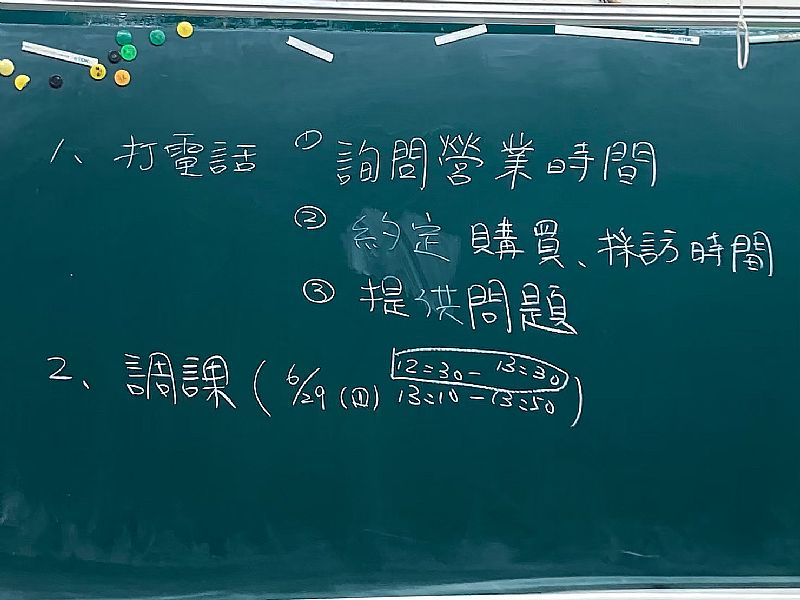 1、打電話 ① 詢問營業時間
② 約定購買、採訪時間
③ 提供問題
2、調課(6/29(四) 12:30-13:30
13:10-13:50)